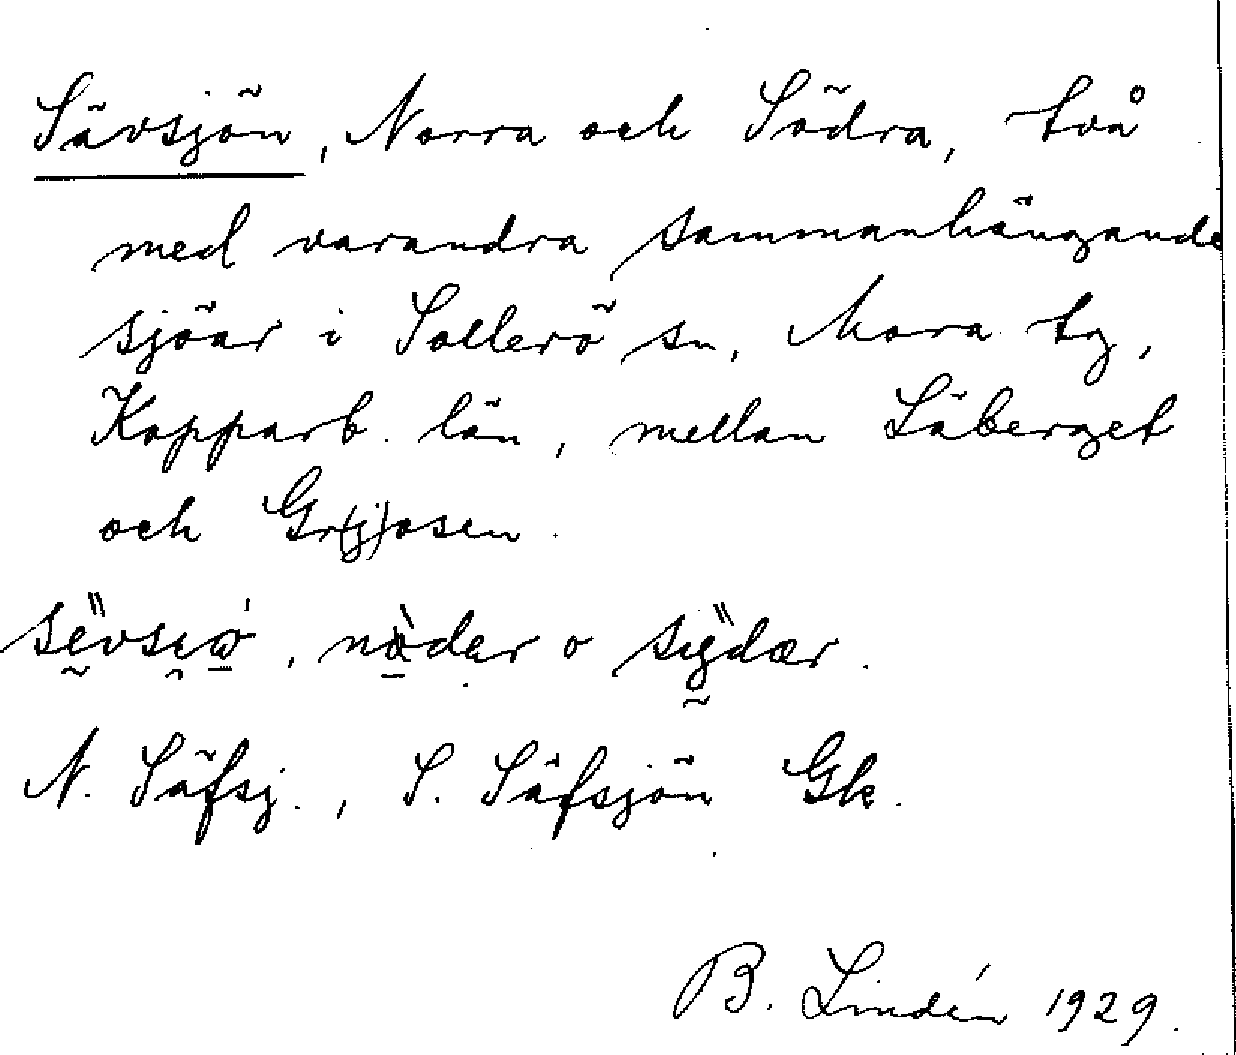 Sävsjön, Norra och Södra, två
med varandra sammanhängande
sjöar i Sollerö sn, Mora tg,
Kopparb. län, mellan Läberget
och Gr(j)osen.
o
N. Säfsj., S. Säfsjön Gk.
B. Lindén 1929.